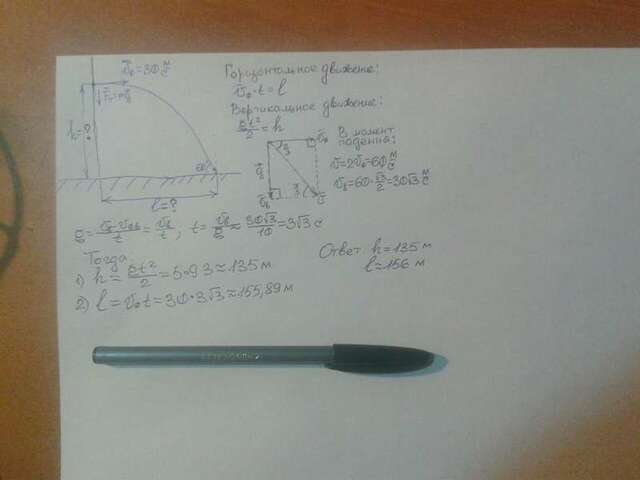 v₀=30 м/с
Fт=mg
h=?
l=?
Горизонтальное движение:
v₀·t=l
Вертикальное движение:
gt²/2=h
В момент
падения:
v=2v₀=60 м/с
vв=60·√3/2=30√3 м/с
g=(vв-v₀в)/t=vв/t, t=vв/g≈30√3/10=3√3 с
Тогда
1) h=gt²/2=5·9·3≈135 м
2) l=v₀t=30·3√3≈155,89 м
Ответ: h=135 м
l≈156 м